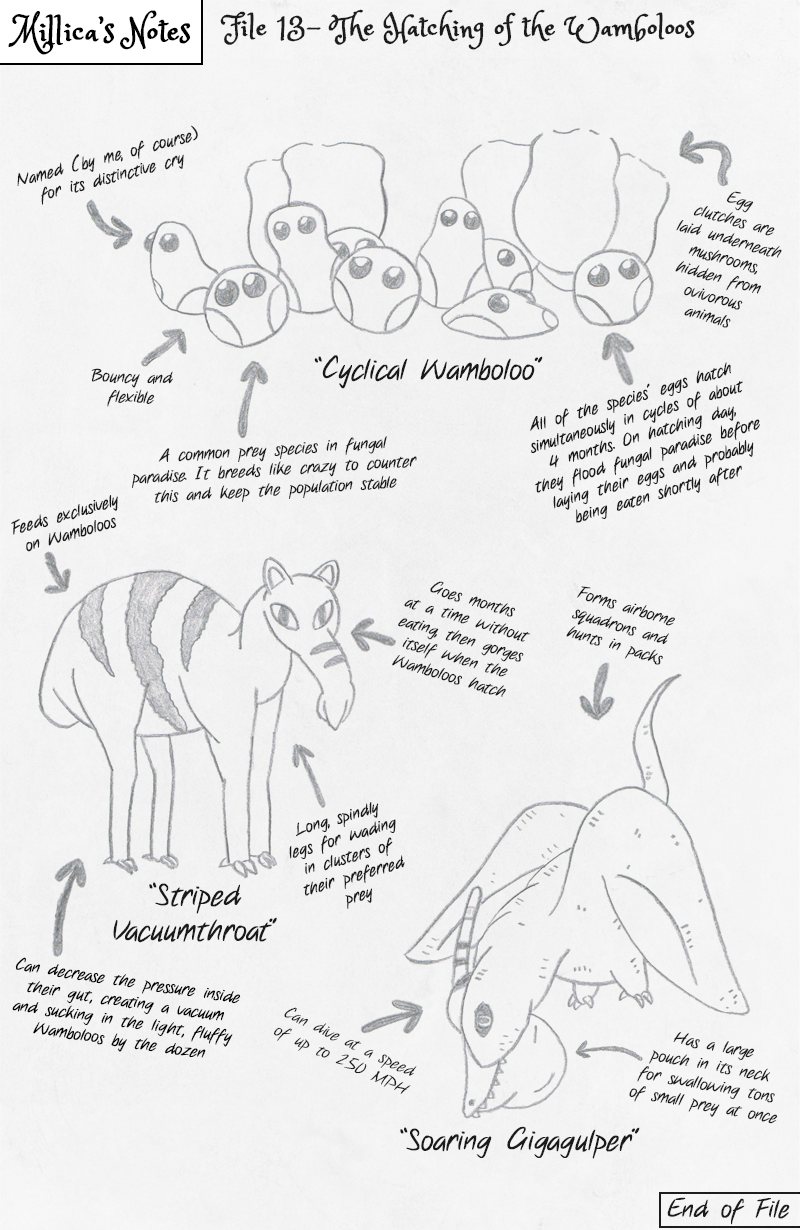 Millica's Notes
File 13- The Hatching of the Wamboloos
Named (by me, of course)
for its distinctive cry
Egg
clutches are
laid underneath
mushrooms,
hidden from
ovivorous
animals
Bouncy and
flexible
"Cyclical Wamboloo"
A common prey species in fungal
paradise. It breeds like crazy to counter
this and keep the population stable
All of the species' eggs hatch
simultaneously in cycles of about
4 months. On hatching day,
they flood fungal paradise before
laying their eggs and probably
being eaten shortly after
Feeds exclusively
on Wamboloos
Goes months
at a time without
eating, then gorges
itself when the
Wamboloos hatch
Forms airborne
squadrons and
hunts in packs
Long, spindly
legs for wading
in clusters of
their preferred
prey
"Striped
Vacuumthroat"
Can decrease the pressure inside
their gut, creating a vacuum
and sucking in the light, fluffy
Wamboloos by the dozen
Can dive at a speed
of up to 250 MPH
Has a large
pouch in its neck
for swallowing tons
of small prey at once
"Soaring Gigagulper"
End of File